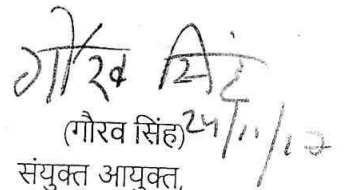 गौरव सिंह
(गौरव सिंह) 24/11/17
संयुक्त आयुक्त,